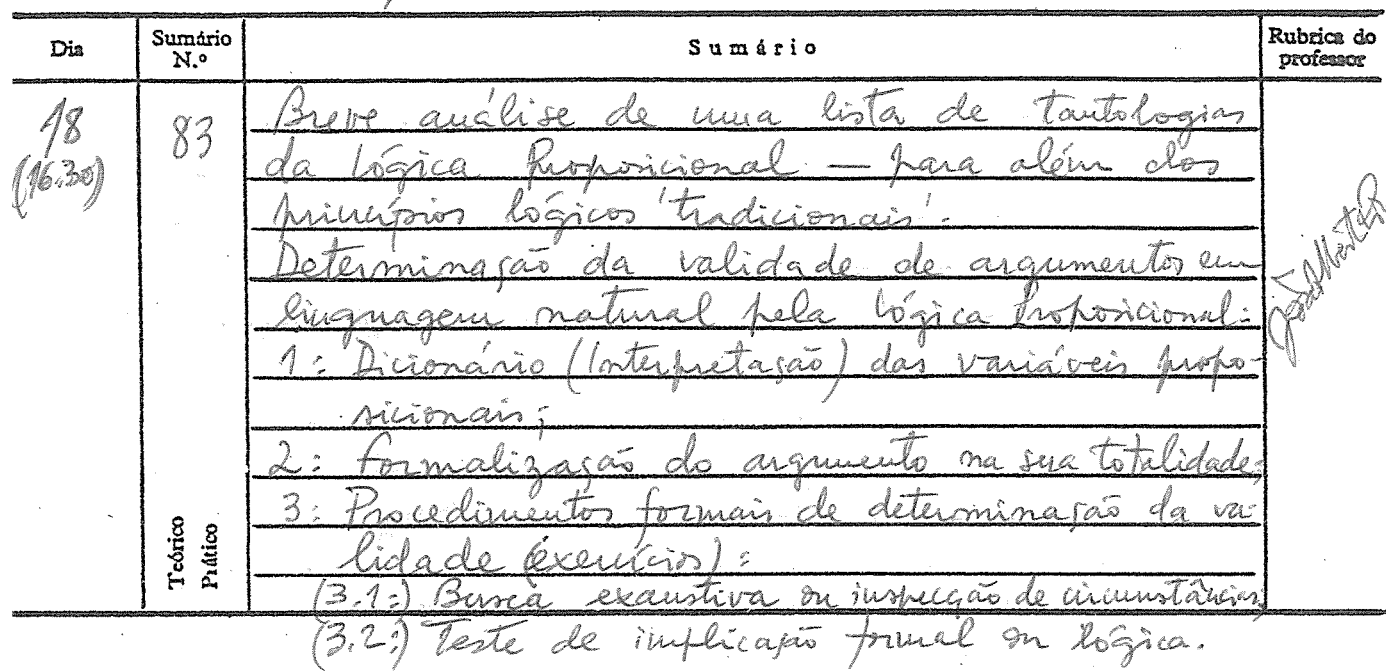 Dia
Sumário
N.º
Sumário
Rubrica do
professor
18
(16.30)
83
Teórico
Prático
Breve análise de uma lista de tautologias
da Lógica Proposicional — para além dos
princípios lógicos 'tradicionais'.
Determinação da validade de argumentos em
linguagem natural pela Lógica Proposicional:
1: Dicionário (Interpretação) das variáveis propo-
sicionais;
2: Formalização do argumento na sua totalidade;
3: Procedimentos formais de determinação da va-
lidade (exercícios):
(3.1:) Busca exaustiva ou inspecção de circunstâncias;
(3.2:) Teste de implicação formal ou lógica.